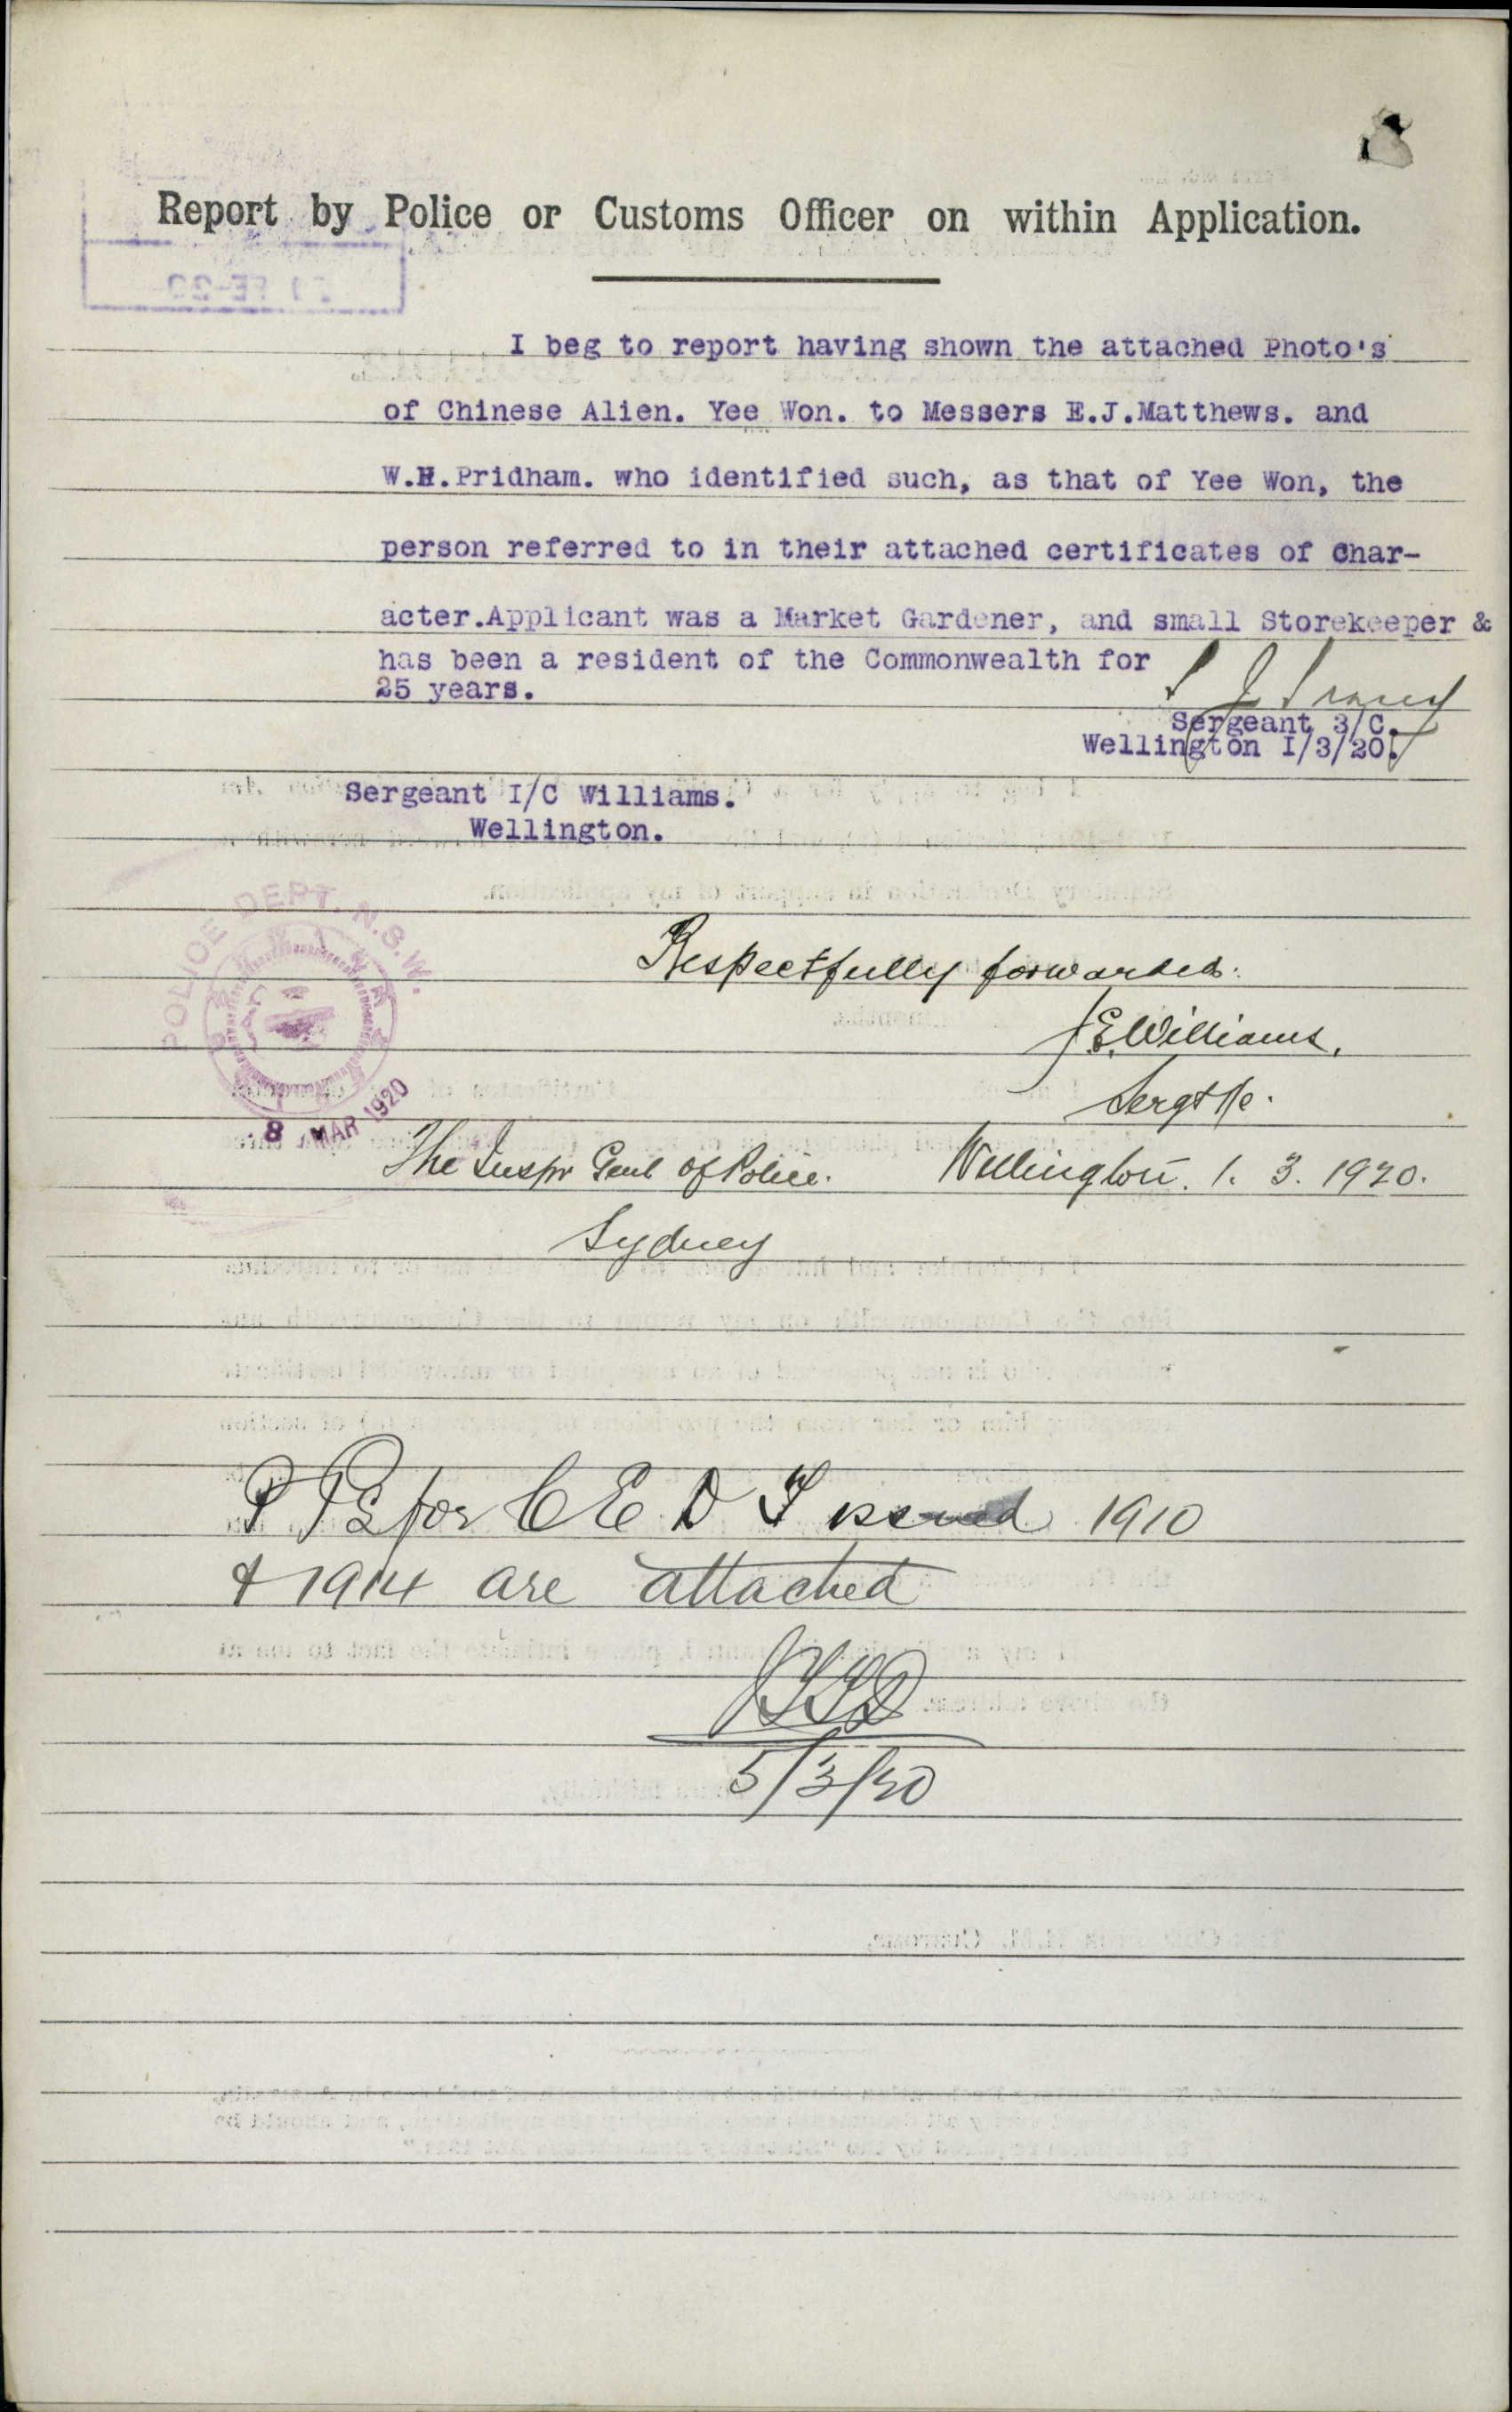 Report by Police or Customs Officer on within Application.
I beg to report having shown the attached Photo's
of Chinese Alien. Yee Won. to Messers E.J.Matthews. and
W.H.Pridham. who identified such, as that of Yee Won, the
person referred to in their attached certificates of Char-
acter.Applicant was a Market Gardener, and small Storekeeper &
has been a resident of the Commonwealth for
25 years.
Sergeant 3/C.
Wellington I/3/20.
Sergeant I/C Williams.
Wellington.
POLICE DEPT. N.S.W.
8 MAR 1920
Respectfully forwarded.
J E Williams.
Sergt 1/c.
The Inspr Genl of Police. Wellington. 1. 3. 1920.
Sydney
for C E D T issued 1910
& 1914 are attached
5/3/20